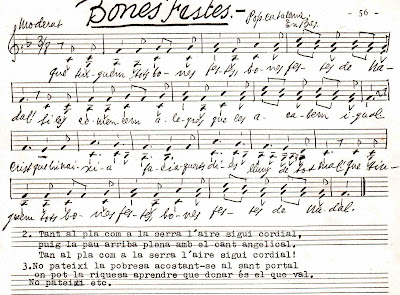 Bones Festes.-
Moderat
Pop. catalana
- 56 -
que tin-guem tots bo-nes fes-tes bo-nes fes-tes de Na-
dal! Si les co-men-cem a-le-gres que les a-ca-bem i-gual.
Crist que hi nai-xi-a
lluny de tot mal! Que tin-
guem tots bo-nes fes-tes, bo-nes fes-tes de Na-dal.
2. Tant al pla com a la serra l'aire sigui cordial,
puig la pau arriba plena amb el cant angelical.
Tan al pla com a la serra l'aire sigui cordial!
3.No pateixi la pobresa acostant-se al sant portal
on pot la riquesa aprendre que donar és el que val.
No pateixi etc.